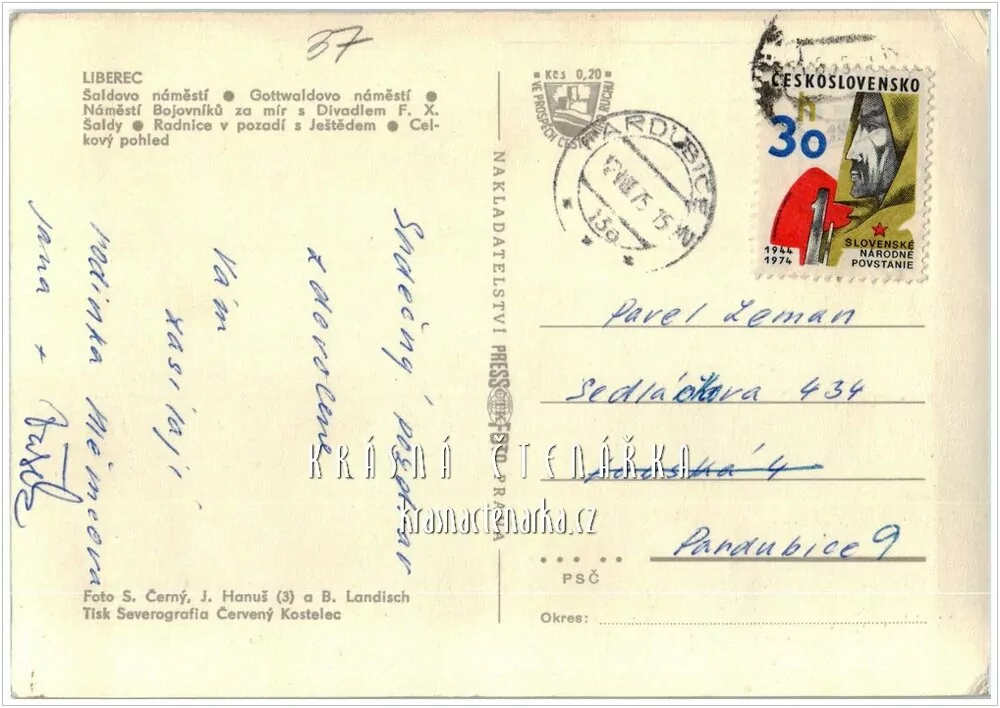 57
LIBEREC
Šaldovo náměstí ● Gottwaldovo náměstí ●
Náměstí Bojovníků za mír s Divadlem F. X.
Šaldy ● Radnice v pozadí s Ještědem ● Cel-
kový pohled
Srdečný pozdrav
z dovolené
Vám
zasílají
rodinka
Jana +
Foto S. Černý, J. Hanuš (3) a B. Landisch
Tisk Severografia Červený Kostelec
NAKLADATELSTVÍ PRESSFOTO PRAHA
ČTK
Kčs 0,20
VE PROSPĚCH CESTOVNÍHO RUCHU
PARDUBICE
75
ČESKOSLOVENSKO
30 h
1944
1974
SLOVENSKÉ
NÁRODNÉ
POVSTANIE
Pavel Zeman
434
Pardubice 9
PSČ
Okres:
KRÁSNÁ ČTENÁŘKA
krasnactenarka.cz